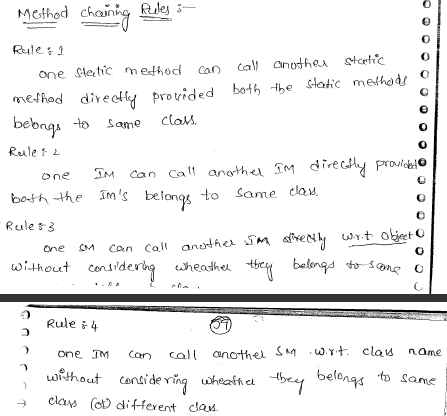 Method chaining Rules :-
Rule : 1
one static method can call another static
method directly provided both the static methods
belongs to same class.
Rule : 2
one IM can call another IM directly provided
both the IM's belongs to same class.
Rule : 3
one SM can call another IM directly w.r.t object
without considering wheather they belongs to same
Rule : 4
one IM can call another SM w.r.t. class name
without considering wheather they belongs to same
class (or) different class.